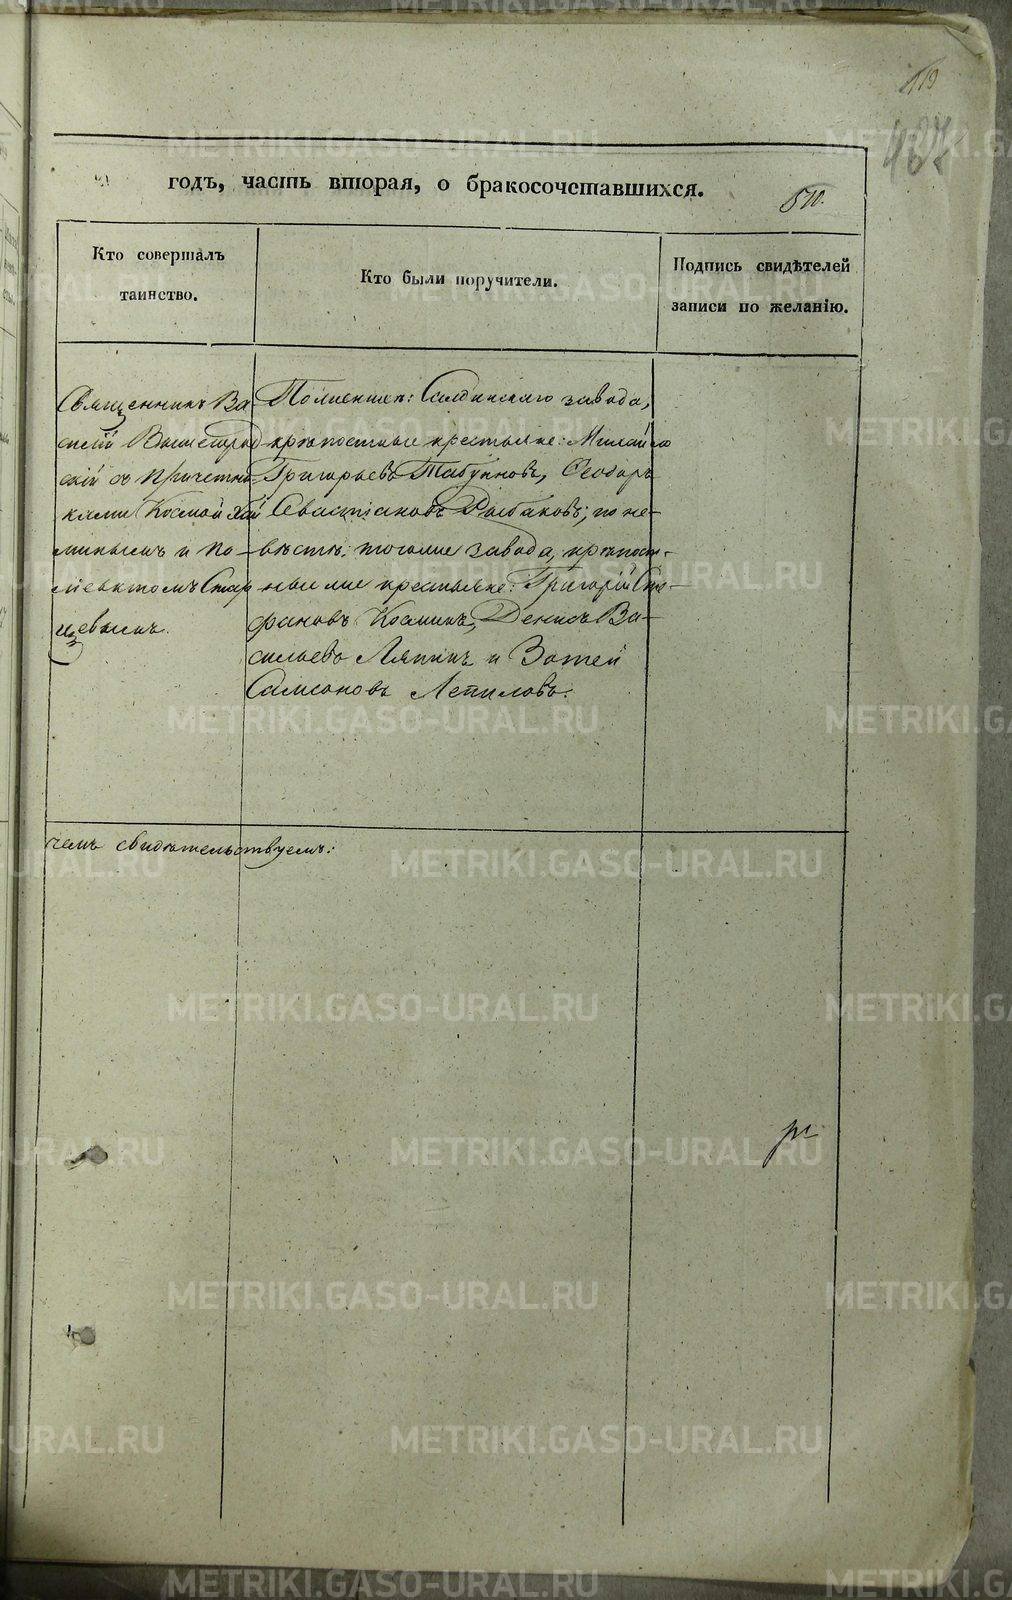 119
годъ, часть вторая, о бракосочетавшихся.
510.
Кто совершалъ
таинство.
Кто были поручители.
Подпись свидѣтелей
записи по желанію.
Священникъ Ва-
силій
скій съ причетни-
ками Космой
и По-
лієвктомъ Стар-
цевымъ.
По женихѣ: Салдинскаго завода,
крѣпостные крестьяне:
Григорьевъ Табуновъ, Ѳеодоръ
Севастіановъ Рыбаковъ; по не-
вѣстѣ: тогоже завода, крѣпост-
ные же крестьяне: Григорій Сте-
фановъ Космин, Денисъ Ва-
сильевъ Ляпин и
Самсоновъ Лепиловъ.
чемъ свидѣтельствуемъ:
METRIKI.GASO-URAL.RU